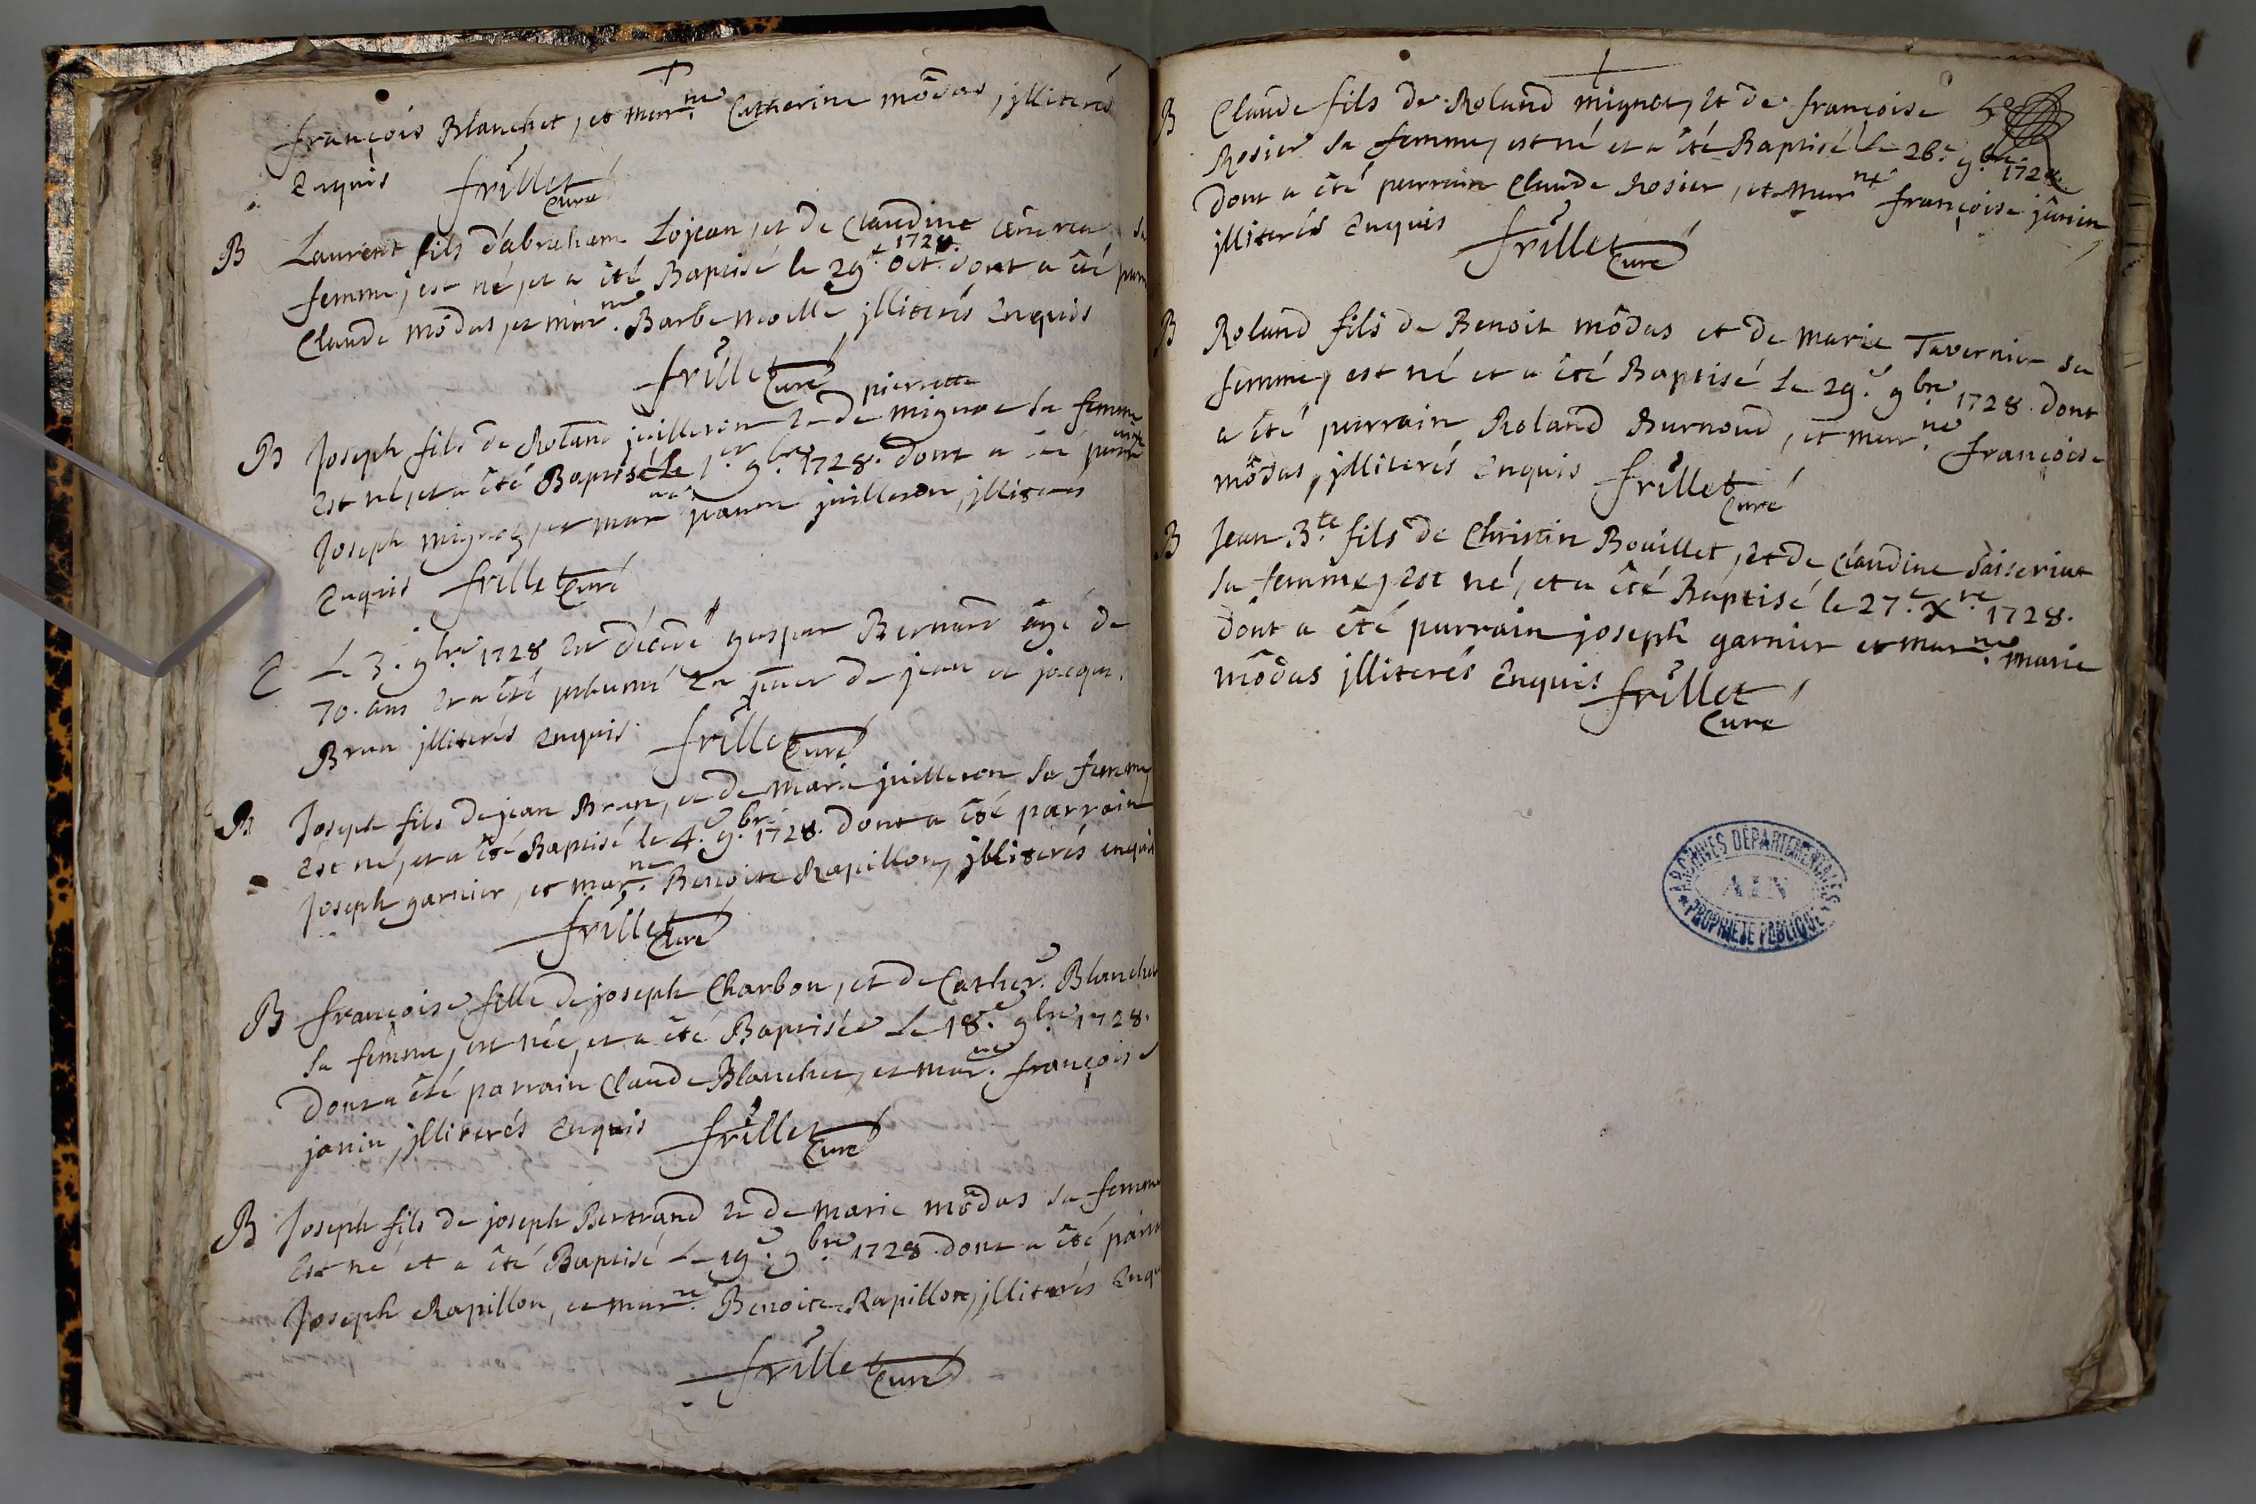 françois Blanchet, et marr.ne Catherine môdas, jlliterés
Enquis frillet
Curé
B Laurent fils d'abraham Lojean, et de Claudine sa
1728.
femme, est né, et a été Baptisé le 29.e Oct. dont a été parr
Claude môdas, et marr.ne Barbe Moille jlliterés Enquis
frillet Curé
pierrette
B Joseph fils de Roland juilleron et de mignot sa femme
est né, et a été Baptisé le 1.er 9.bre 1728. dont a été parrain
Joseph mignot, et marr.ne juilleron, jlliterés
Enquis frillet Curé
E Le 3.e 9.bre 1728 est décédé gaspar Bernard âgé de
70. ans et a été jnhumé En pñce de jean et jacque
Brun jlliterés enquis frillet Curé
B Joseph fils de jean Brun, et de Marie juilleron sa femme,
est né, et a été Baptisé le 4.e 9.bre 1728. dont a été parrain
Joseph garnier, et marr.ne Benoite Rapillon, jlliterés enquis
frillet Curé
B françoise fille de joseph Charbon, et de Cather. Blanchet
sa femme, est née, et a été Baptisée Le 18.e 9.bre 1728.
Dont a été parrain Claude Blanchet, et marr.ne françoise
janin, jlliterés Enquis frillet
Curé
B Joseph fils de joseph Bertrand et de marie môdas sa femme
Est né et a été Baptisé Le 19.e 9.bre 1728. dont a été parr
Joseph Rapillon, et marr.ne Benoite Rapillon, jlliterés Enqu
frillet Curé
B Claude fils de Roland mignot, et de françoise
Rosier sa femme, est né et a été Baptisé Le 26.e 9.bre 1728.
Dont a été parrain Claude Rosier, et marr.ne françoise janin,
jlliterés Enquis frillet
Curé
B Roland fils de Benoit môdas et de marie Tavernier sa
femme, est né et a été Baptisé Le 29.e 9.bre 1728. dont
a été parrain Roland Burnoud, et marr.ne françoise
môdas, jlliterés Enquis frillet
Curé
B Jean B.te fils de Christin Bouillet, et de Claudine
sa femme, est né, et a été Baptisé le 27.e X.re 1728.
dont a été parrain joseph garnier et marr.ne marie
môdas jlliterés Enquis frillet
Curé
ARCHIVES DÉPARTEMENTALES
AIN
PROPRIÉTÉ PUBLIQUE